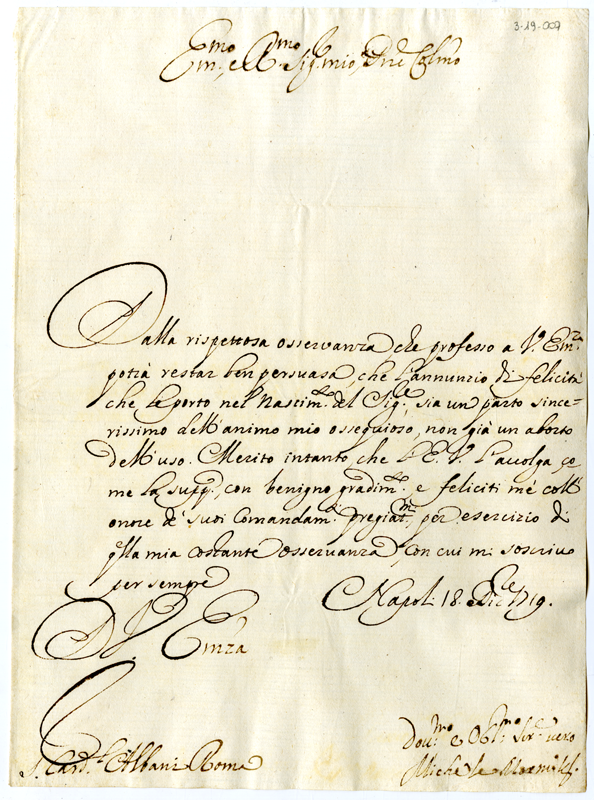 3-19-007
Emo mo
Em. e R. Sig. mio, Pne Colmo
Dalla rispettosa osservanza che professo a V. Emza
potrà restar ben persuasa, che l'annunzio di felicità
che le porto nel Nascimto del Sige, sia un parto since-
rissimo dell'animo mio ossequioso, non già un aborto
dell'uso. Merito intanto, che l'E. V. l'accolga co
me la supp., con benigno gradimto, e feliciti me coll'
onore de' suoi Comandamti pregiatmi, per esercizio di
qlla mia costante osservanza, con cui mi soscrivo
per sempre
Napoli 18. Dice 1719.
D. V. Emza
S. Cardle Albani Roma
Devmo e Obmo Sere vero
Michele